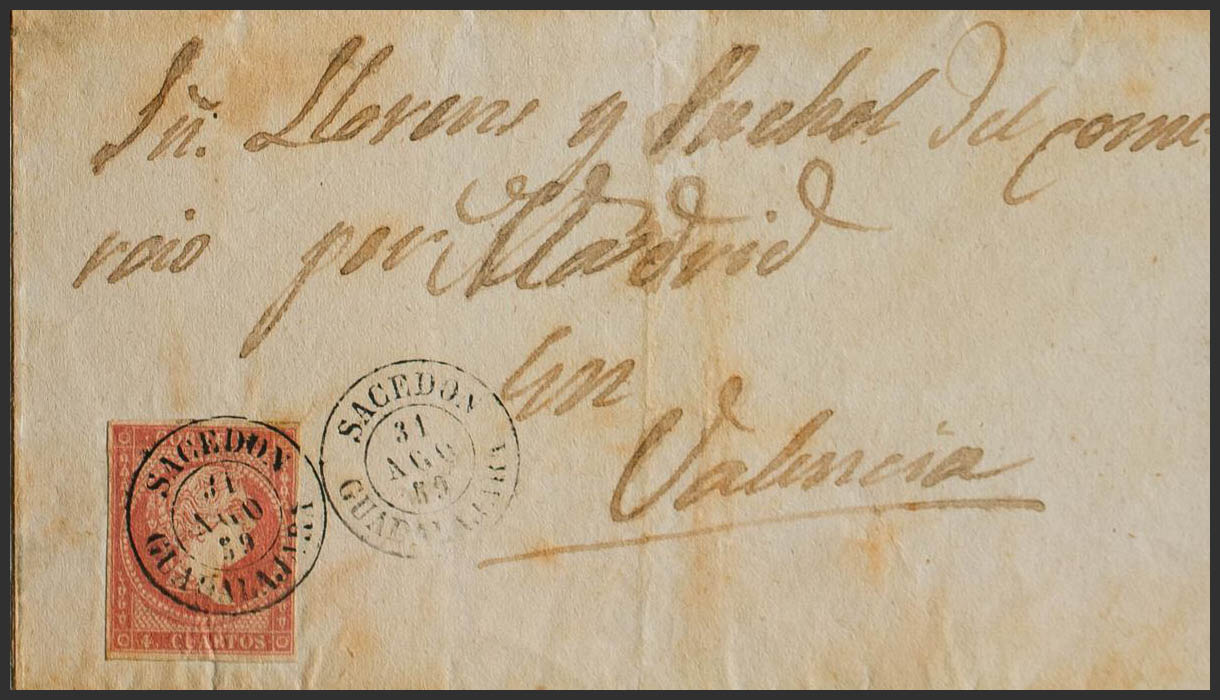 Sñ. Llorens y Puchol del come-
rcio por Madrid
En
Valencia
SACEDON
31
AGO
59
GUADALAJARA
SACEDON
31
AGO
59
GUADALAJARA
4 CUARTOS